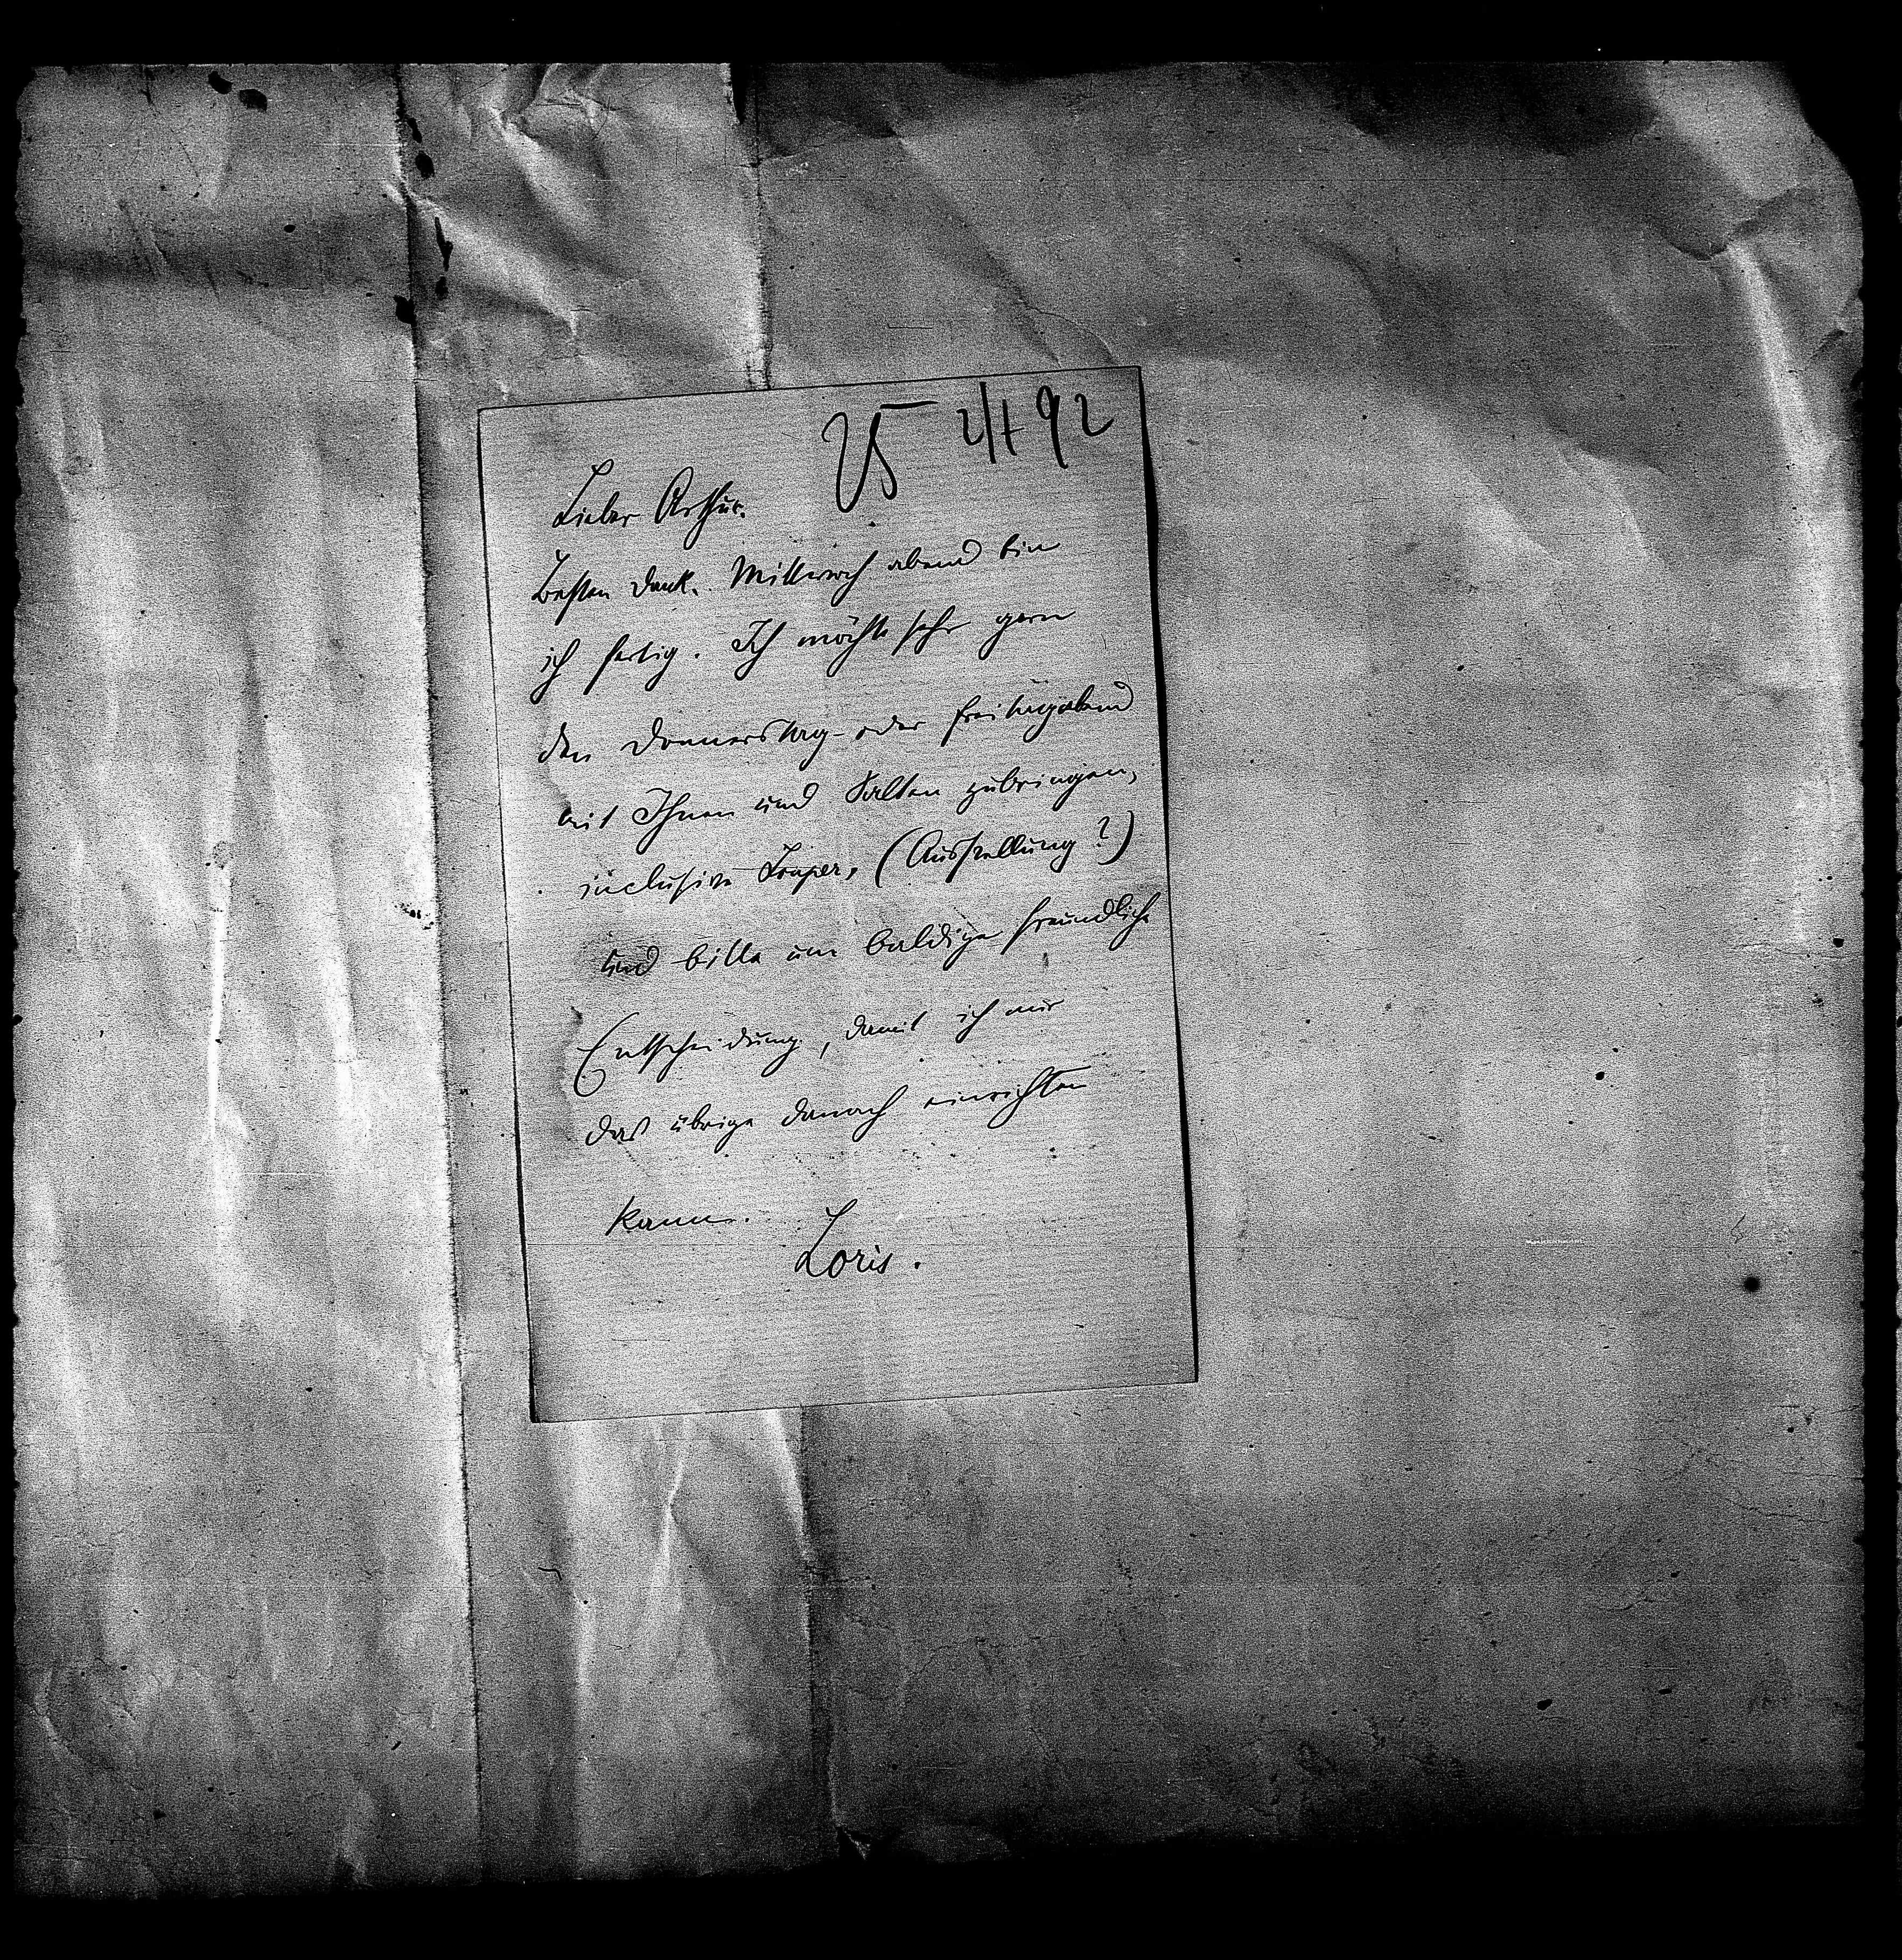 2/7 92
Lieber Arthur.
Besten Dank. Mittwoch abend bin
ich fertig. Ich möchte sehr gern
den Donnerstag- oder Freitagabend
mit Ihnen und Salten zubringen,
inclusive Souper, (Ausstellung?)
und bitte um baldige freundliche
Entscheidung, damit ich mir
das übrige danach einrichten
kann.
Loris.